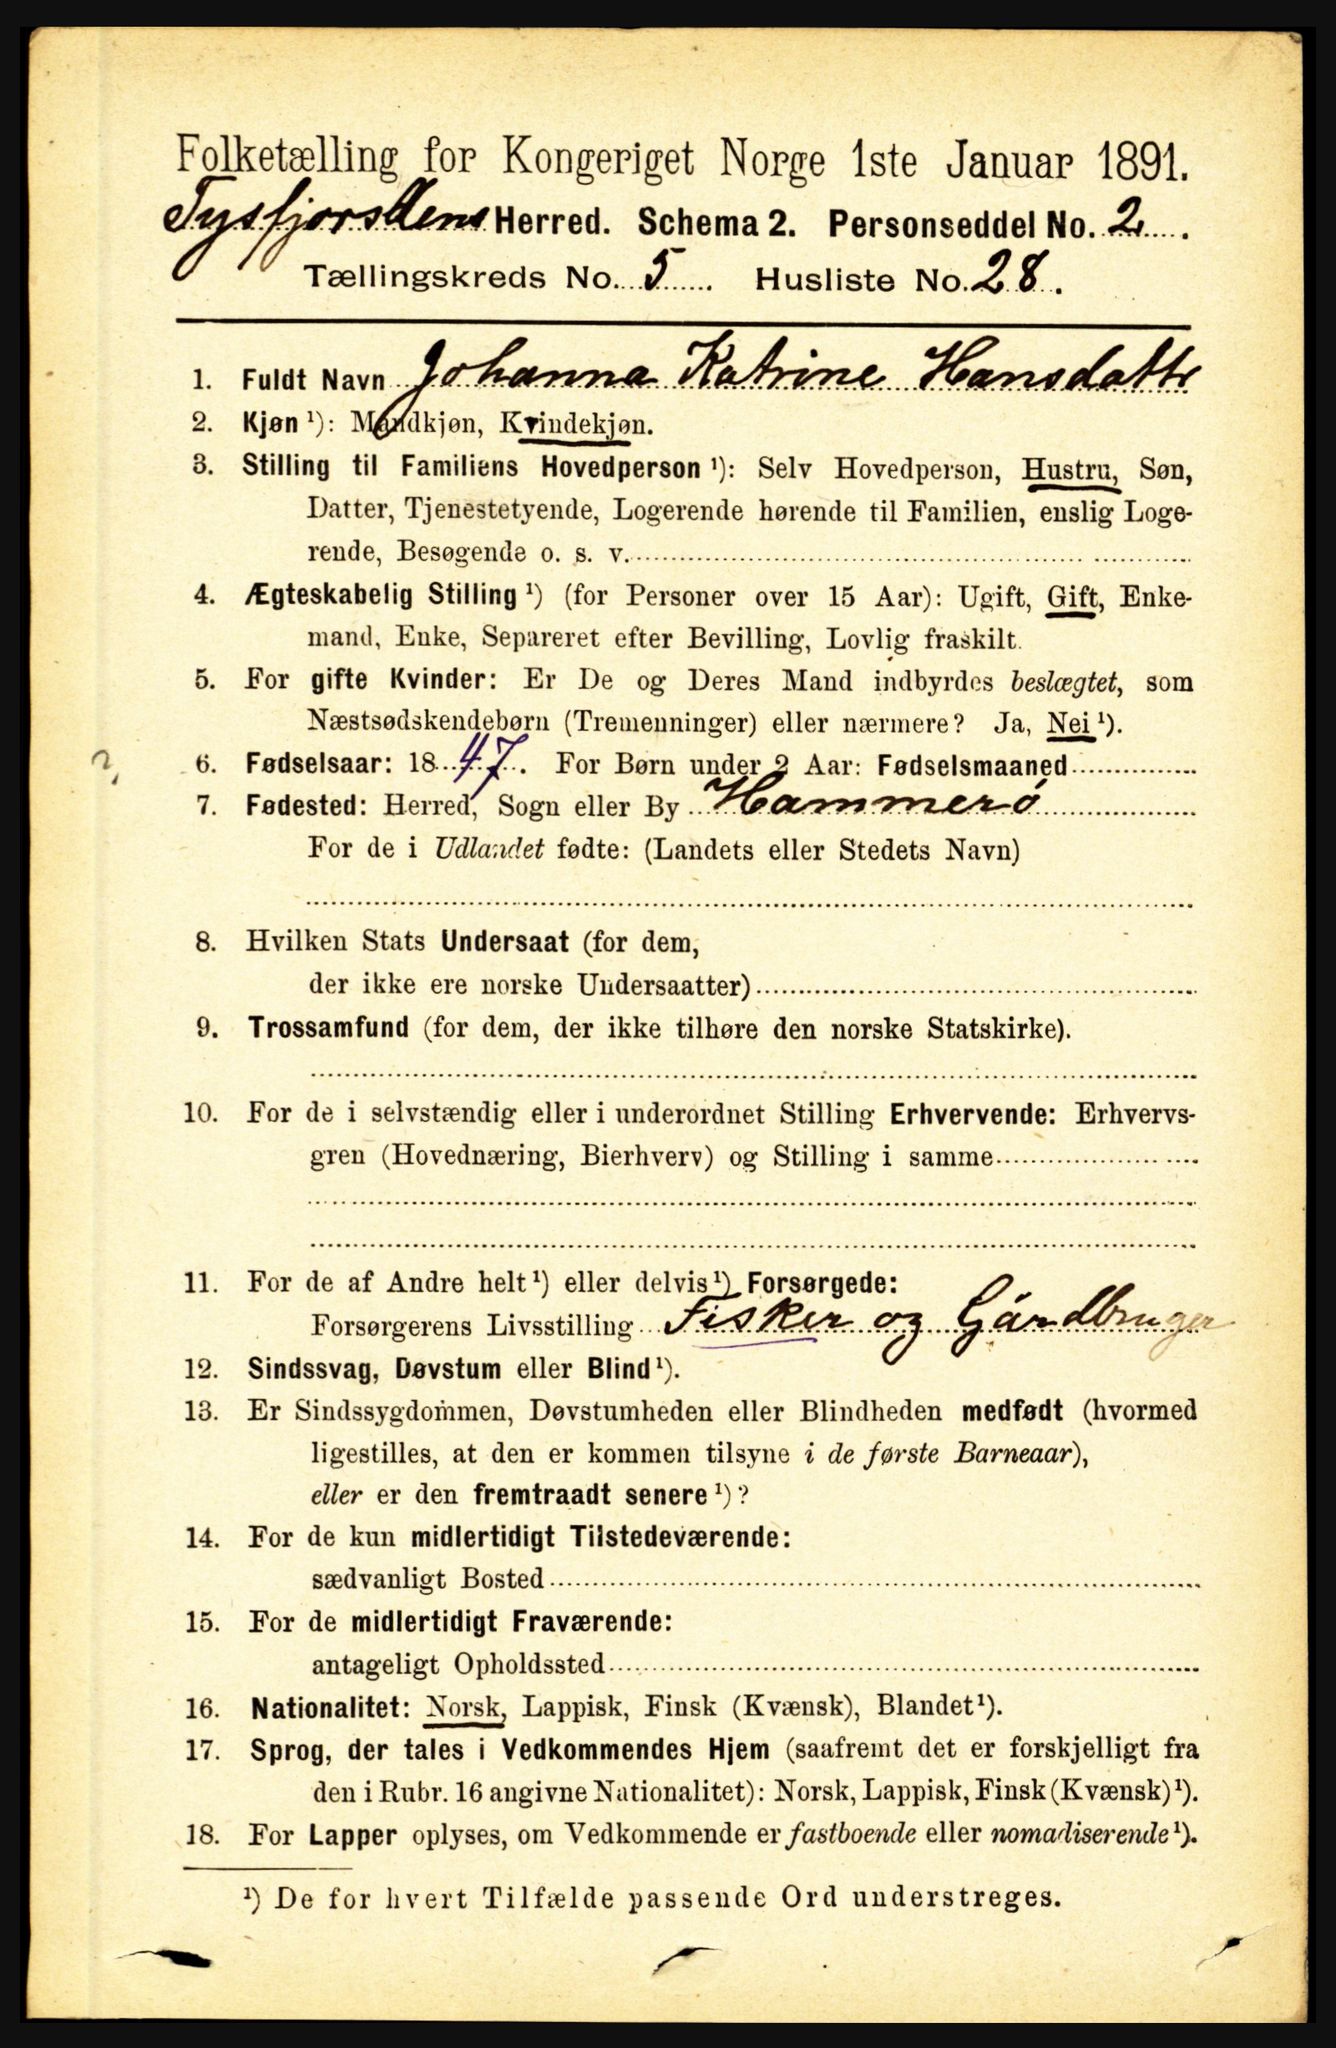 Folketælling for Kongeriget Norge 1ste Januar 1891.
Tysfjordens Herred. Schema 2. Personseddel No. 2.
Tællingskreds No. 5. Husliste No. 28.
1. Fuldt Navn Johanna Katrine Hansdattr
2. Kjøn ¹): Mandkjøn, Kvindekjøn.
3. Stilling til Familiens Hovedperson ¹): Selv Hovedperson, Hustru, Søn,
Datter, Tjenestetyende, Logerende hørende til Familien, enslig Loge-
rende, Besøgende o. s. v.
4. Ægteskabelig Stilling ¹) (for Personer over 15 Aar): Ugift, Gift, Enke-
mand, Enke, Separeret efter Bevilling, Lovlig fraskilt.
5. For gifte Kvinder: Er De og Deres Mand indbyrdes beslægtet, som
Næstsødskendebørn (Tremenninger) eller nærmere? Ja, Nei ¹).
?
6. Fødselsaar: 1847. For Børn under 2 Aar: Fødselsmaaned
7. Fødested: Herred, Sogn eller By Hammerø
For de i Udlandet fødte: (Landets eller Stedets Navn)
8. Hvilken Stats Undersaat (for dem,
der ikke ere norske Undersaatter)
9. Trossamfund (for dem, der ikke tilhøre den norske Statskirke).
10. For de i selvstændig eller i underordnet Stilling Erhvervende: Erhvervs-
gren (Hovednæring, Bierhverv) og Stilling i samme
11. For de af Andre helt ¹) eller delvis ¹) Forsørgede:
Forsørgerens Livsstilling Fisker og Gårdbruger
12. Sindssvag, Døvstum eller Blind ¹).
13. Er Sindssygdommen, Døvstumheden eller Blindheden medfødt (hvormed
ligestilles, at den er kommen tilsyne i de første Barneaar),
eller er den fremtraadt senere ¹)?
14. For de kun midlertidigt Tilstedeværende:
sædvanligt Bosted
15. For de midlertidigt Fraværende:
antageligt Opholdssted
16. Nationalitet: Norsk, Lappisk, Finsk (Kvænsk), Blandet ¹).
17. Sprog, der tales i Vedkommendes Hjem (saafremt det er forskjelligt fra
den i Rubr. 16 angivne Nationalitet): Norsk, Lappisk, Finsk (Kvænsk) ¹).
18. For Lapper oplyses, om Vedkommende er fastboende eller nomadiserende ¹).
¹) De for hvert Tilfælde passende Ord understreges.